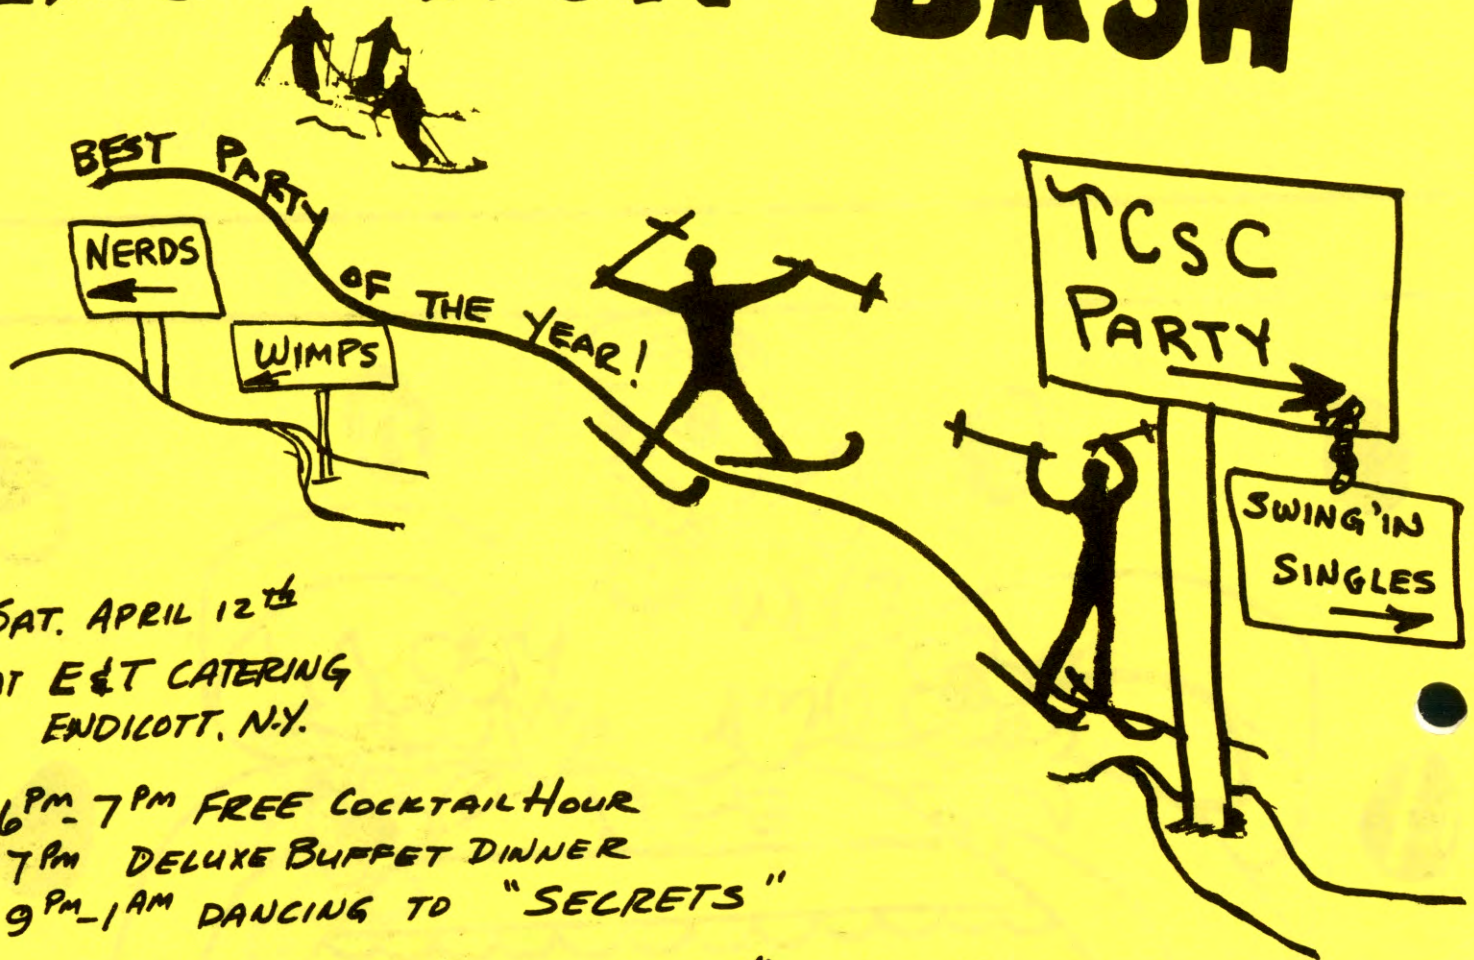 BASH
BEST PARTY OF THE YEAR!
NERDS
WIMPS
TCSC
PARTY
SWING'IN
SINGLES
SAT. APRIL 12th
AT E&T CATERING
ENDICOTT, N.Y.
6PM-7PM FREE COCKTAIL HOUR
7PM DELUXE BUFFET DINNER
9PM-1AM DANCING TO "SECRETS"